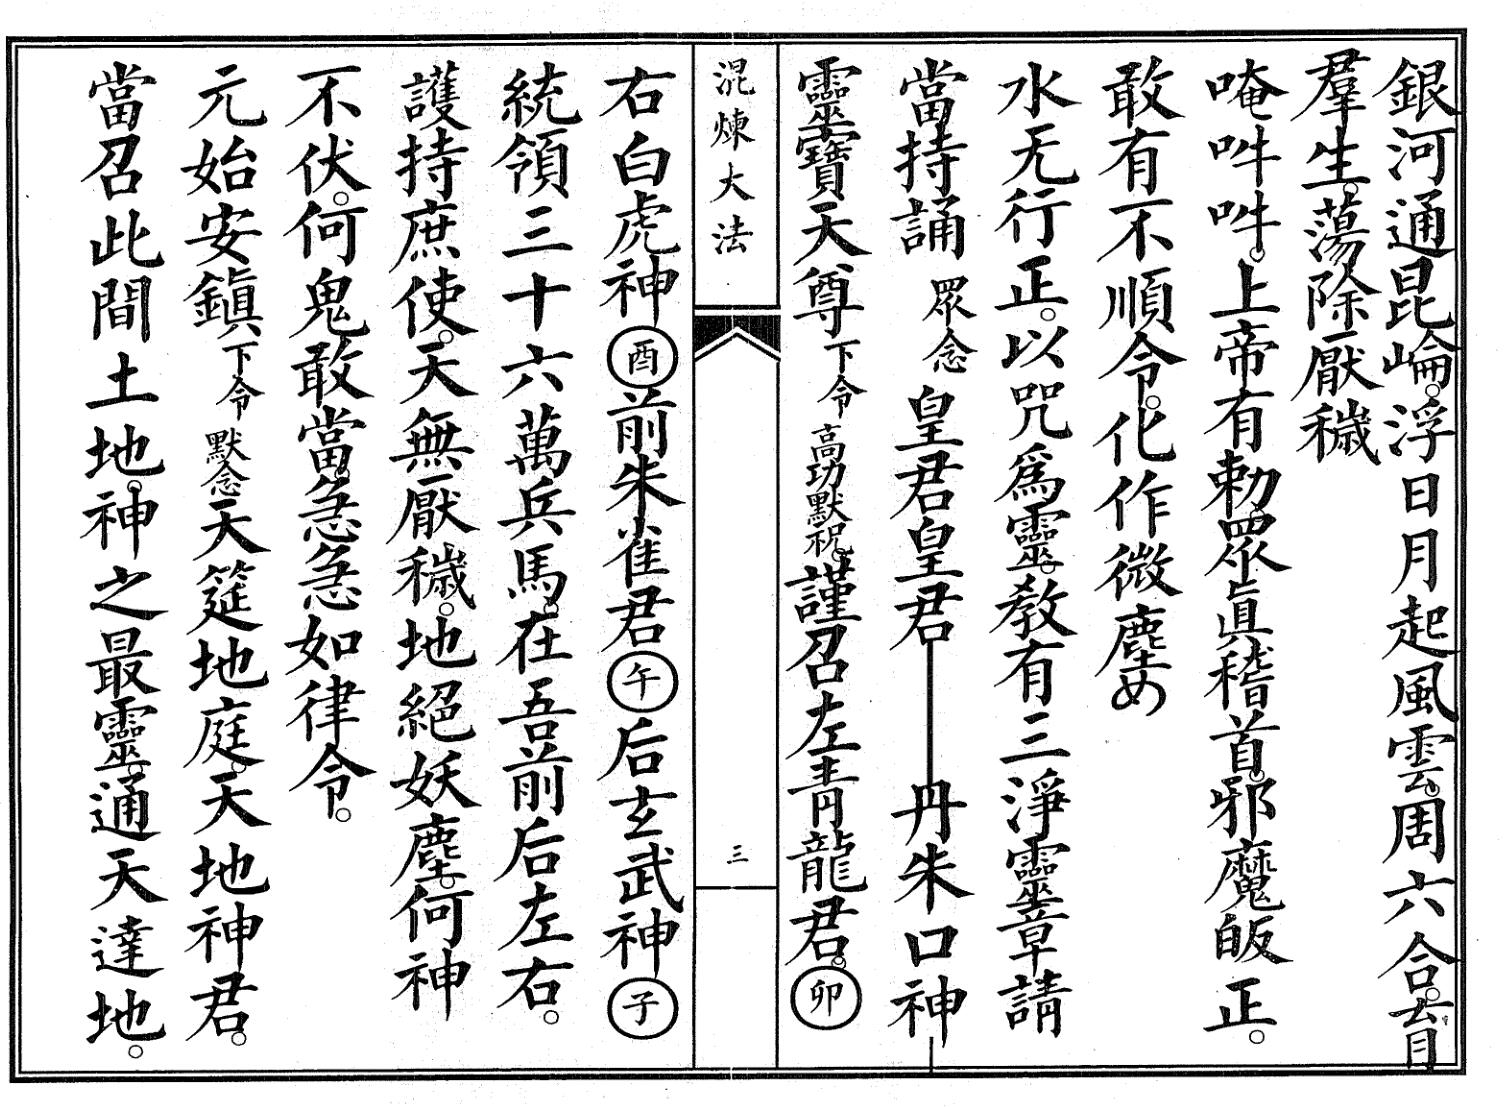 銀河通昆崘。浮日月起風雲。周六合。育
羣生。蕩除厭穢
唵吽吽。上帝有勅。眾眞稽首。邪魔皈正。
敢有不順令。化作微塵め
水无行正。以咒爲靈。教有三淨靈章請
當持誦 眾念 皇君皇君 丹朱口神
靈寶天尊 下令 高功默祝。謹召左青龍君。卯
混煉大法 三
右白虎神 酉 前朱雀君 午 后玄武神 子
統領三十六萬兵馬。在吾前后左右。
護持庶使。天無厭穢。地絕妖塵。何神
不伏。何鬼敢當。急急如律令。
元始安鎭 下令 默念 天筵地庭。天地神君。
當召此間土地。神之最靈。通天達地。